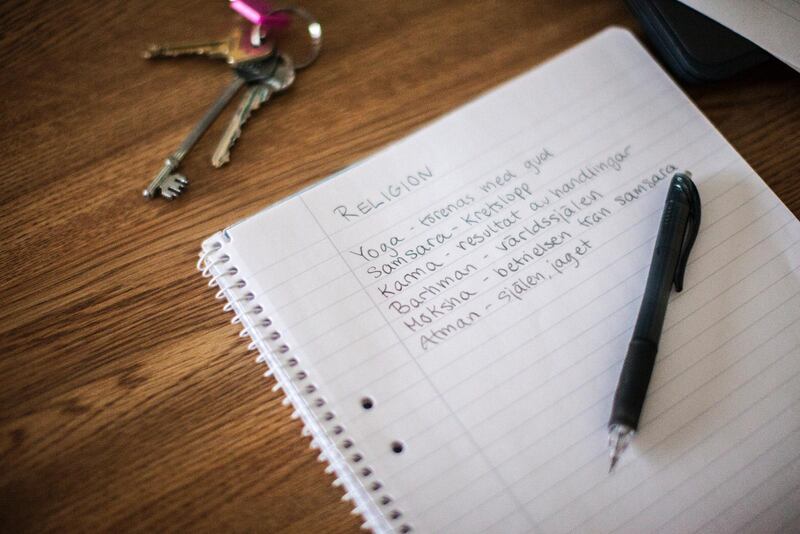 RELIGION
Yoga - förenas med gud
Samsara - Kretslopp
Karma - resultat av handlingar
Barhman - världssjälen
Moksha - befrielsen från samsara
Atman - själen, jaget